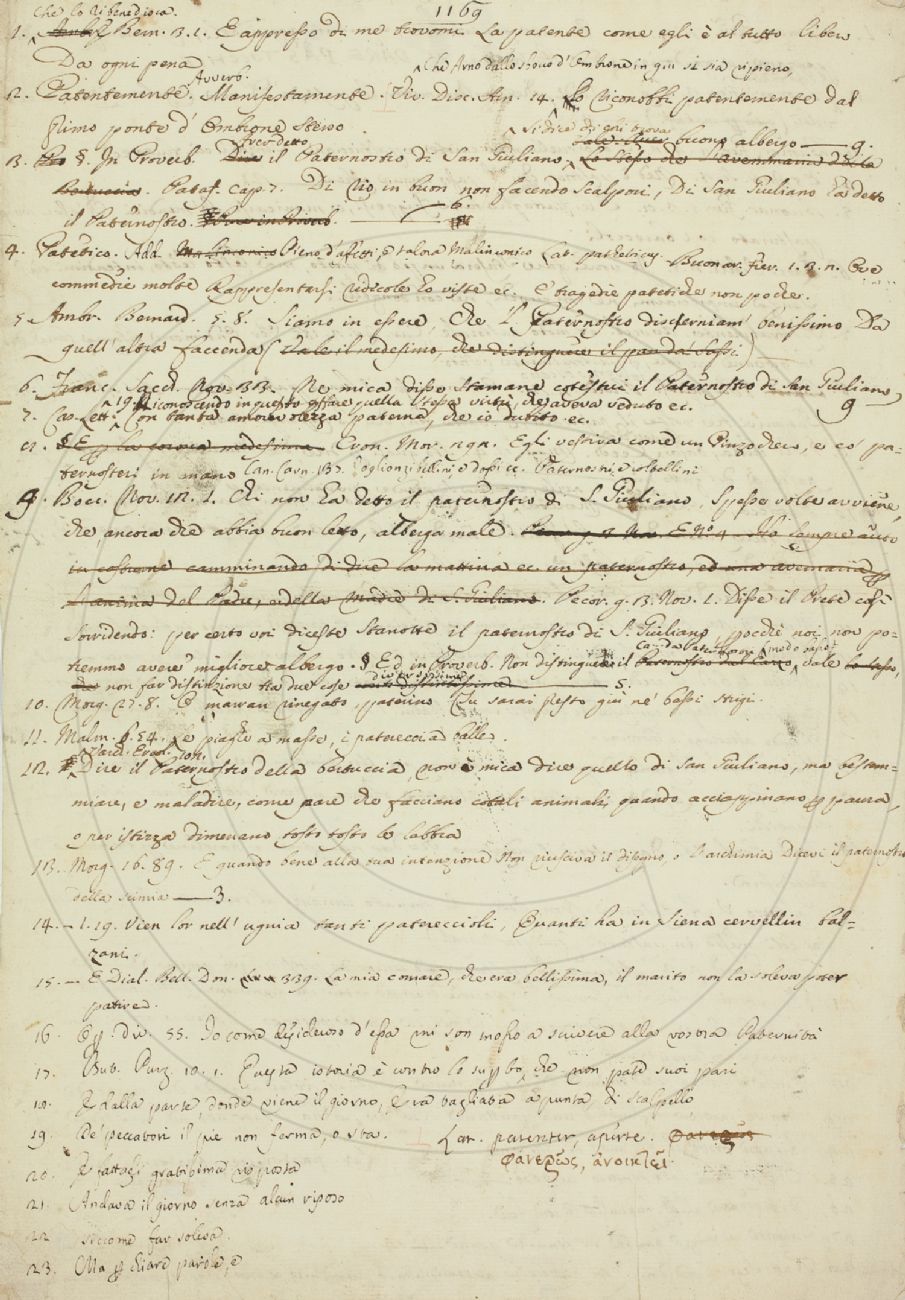 1169
Che lo ribenedica.
1. Bern. 13. 1. E appresso di me trovomi La patente come egli è al tutto libero
Da ogni pena
Avverb. Che Arno dallo sbocco d'Embrione in giù si sia ripieno,
12. Patentemente. Manifestamente. Viv. Disc. Arn. 14. Lo riconobbi patentemente dal
primo ponte d'Embrione stesso
Si dice di chi trova
buono albergo — 9.
13. §. In Proverb. il Paternostro di San Giuliano, Lo stesso che l'avemmaria della
Bertuccia. Pataf. Cap. 7. Di rio in buon non facendo scalponi, Di San Giuliano ha detto
il Paternostro. — 6.
4. Patetico. Add. Malinconico Pieno d'affetti, e talora Malinconico Lat. patheticus. Buonar. Fier. 1. 3. n. Ove
commedie molte Rappresentarsi ridicole ho viste ec. E tragedie patetiche non poche.
5. Ambr. Bernard. 5. 8. Siamo in essere, Che 'l Paternostro discerniam' benissimo Da
quell'altra faccenda (Vale il medesimo, che distinguere il pan da' sassi)
6. Franc. Sacch. Nov. 33. Ne mica disse stamane cotestui il Paternostro di San Giuliano,
19. Riconoscendo in questo affare quella stessa virtù, che aveva veduto ec. 9
7. Car. Lett. Con tanta amorevolezza paterna, che io dubito ec.
8. § E per la corona medesima. Cron. Mor. 292. Egli vestiva come un Pinzochero, e co' pa-
ternostri in mano Can. Carn. 137. Paternostri, e coltellini
9. Bocc. Nov. 12. 1. Chi non ha detto il paternostro di S. Giuliano, spesse volte avviene,
che, ancora che abbia buon letto, alberga male. E N.° 4. Ho sempre avuto
in costume camminando di dire la mattina ec. un paternostro, ed una avemmaria per
l'anima del Padre, e della Madre di S. Giuliano. Pecor. g. 13. Nov. 1. Disse il Prete così
sorridendo: per certo voi diceste stanotte il paternostro di S. Giuliano, poichè noi non po-
tremmo avere migliore albergo. § Ed in Proverb. Non distinguere il vale lo stesso,
che non far distinzione tra due cose — 5.
10. Morg. 27. 8. O marran rinegato, paterino Tu sarai presto giù ne' bassi strigi.
11. Malm. 6. 54. Le piaghe a masse, i paterecci a balle.
Varch. Ercol. 101.
12. Dire il Paternostro della bertuccia, non è mica dire quello di San Giuliano, ma bestem-
miare, e maladire, come pare che facciano cotali animali, quando acciappinano per paura,
o per istizza dimenano tosto tosto le labbra
13. Morg. 16. 89. E quando bene alla sua intenzione Non riusciva il disegno, o l'archimia Diceva il paternostro
della scimia — 3.
14. — 1. 19. Vien lor nell'ugnia tanti patereccioli, Quanti ha in Siena cervellin bal-
zani.
15. — E Dial. Bell. Don. 339. La mia comare, che era bellissima, il marito non la soleva poter
patire.
16. Opp. div. 55. Io come desideroso d'essa mi son mosso a scrivere alla vostra Paternità
17. But. Purg. 10. 1. Questa istoria è contro lo superbo, che non pate suoi pari
18. E dalla parte, donde viene il giorno, Era tagliata a punta di scalpello
19. De' peccatori il piè non ferma, o sta. Lat. patenter, aperte.
φανερῶς, ἀνοικτῶς
20. E fattagli gratissima risposta
21. Andava il giorno senza alcun riposo
22. siccome far soleva.
23. Ma per chiare parole, e